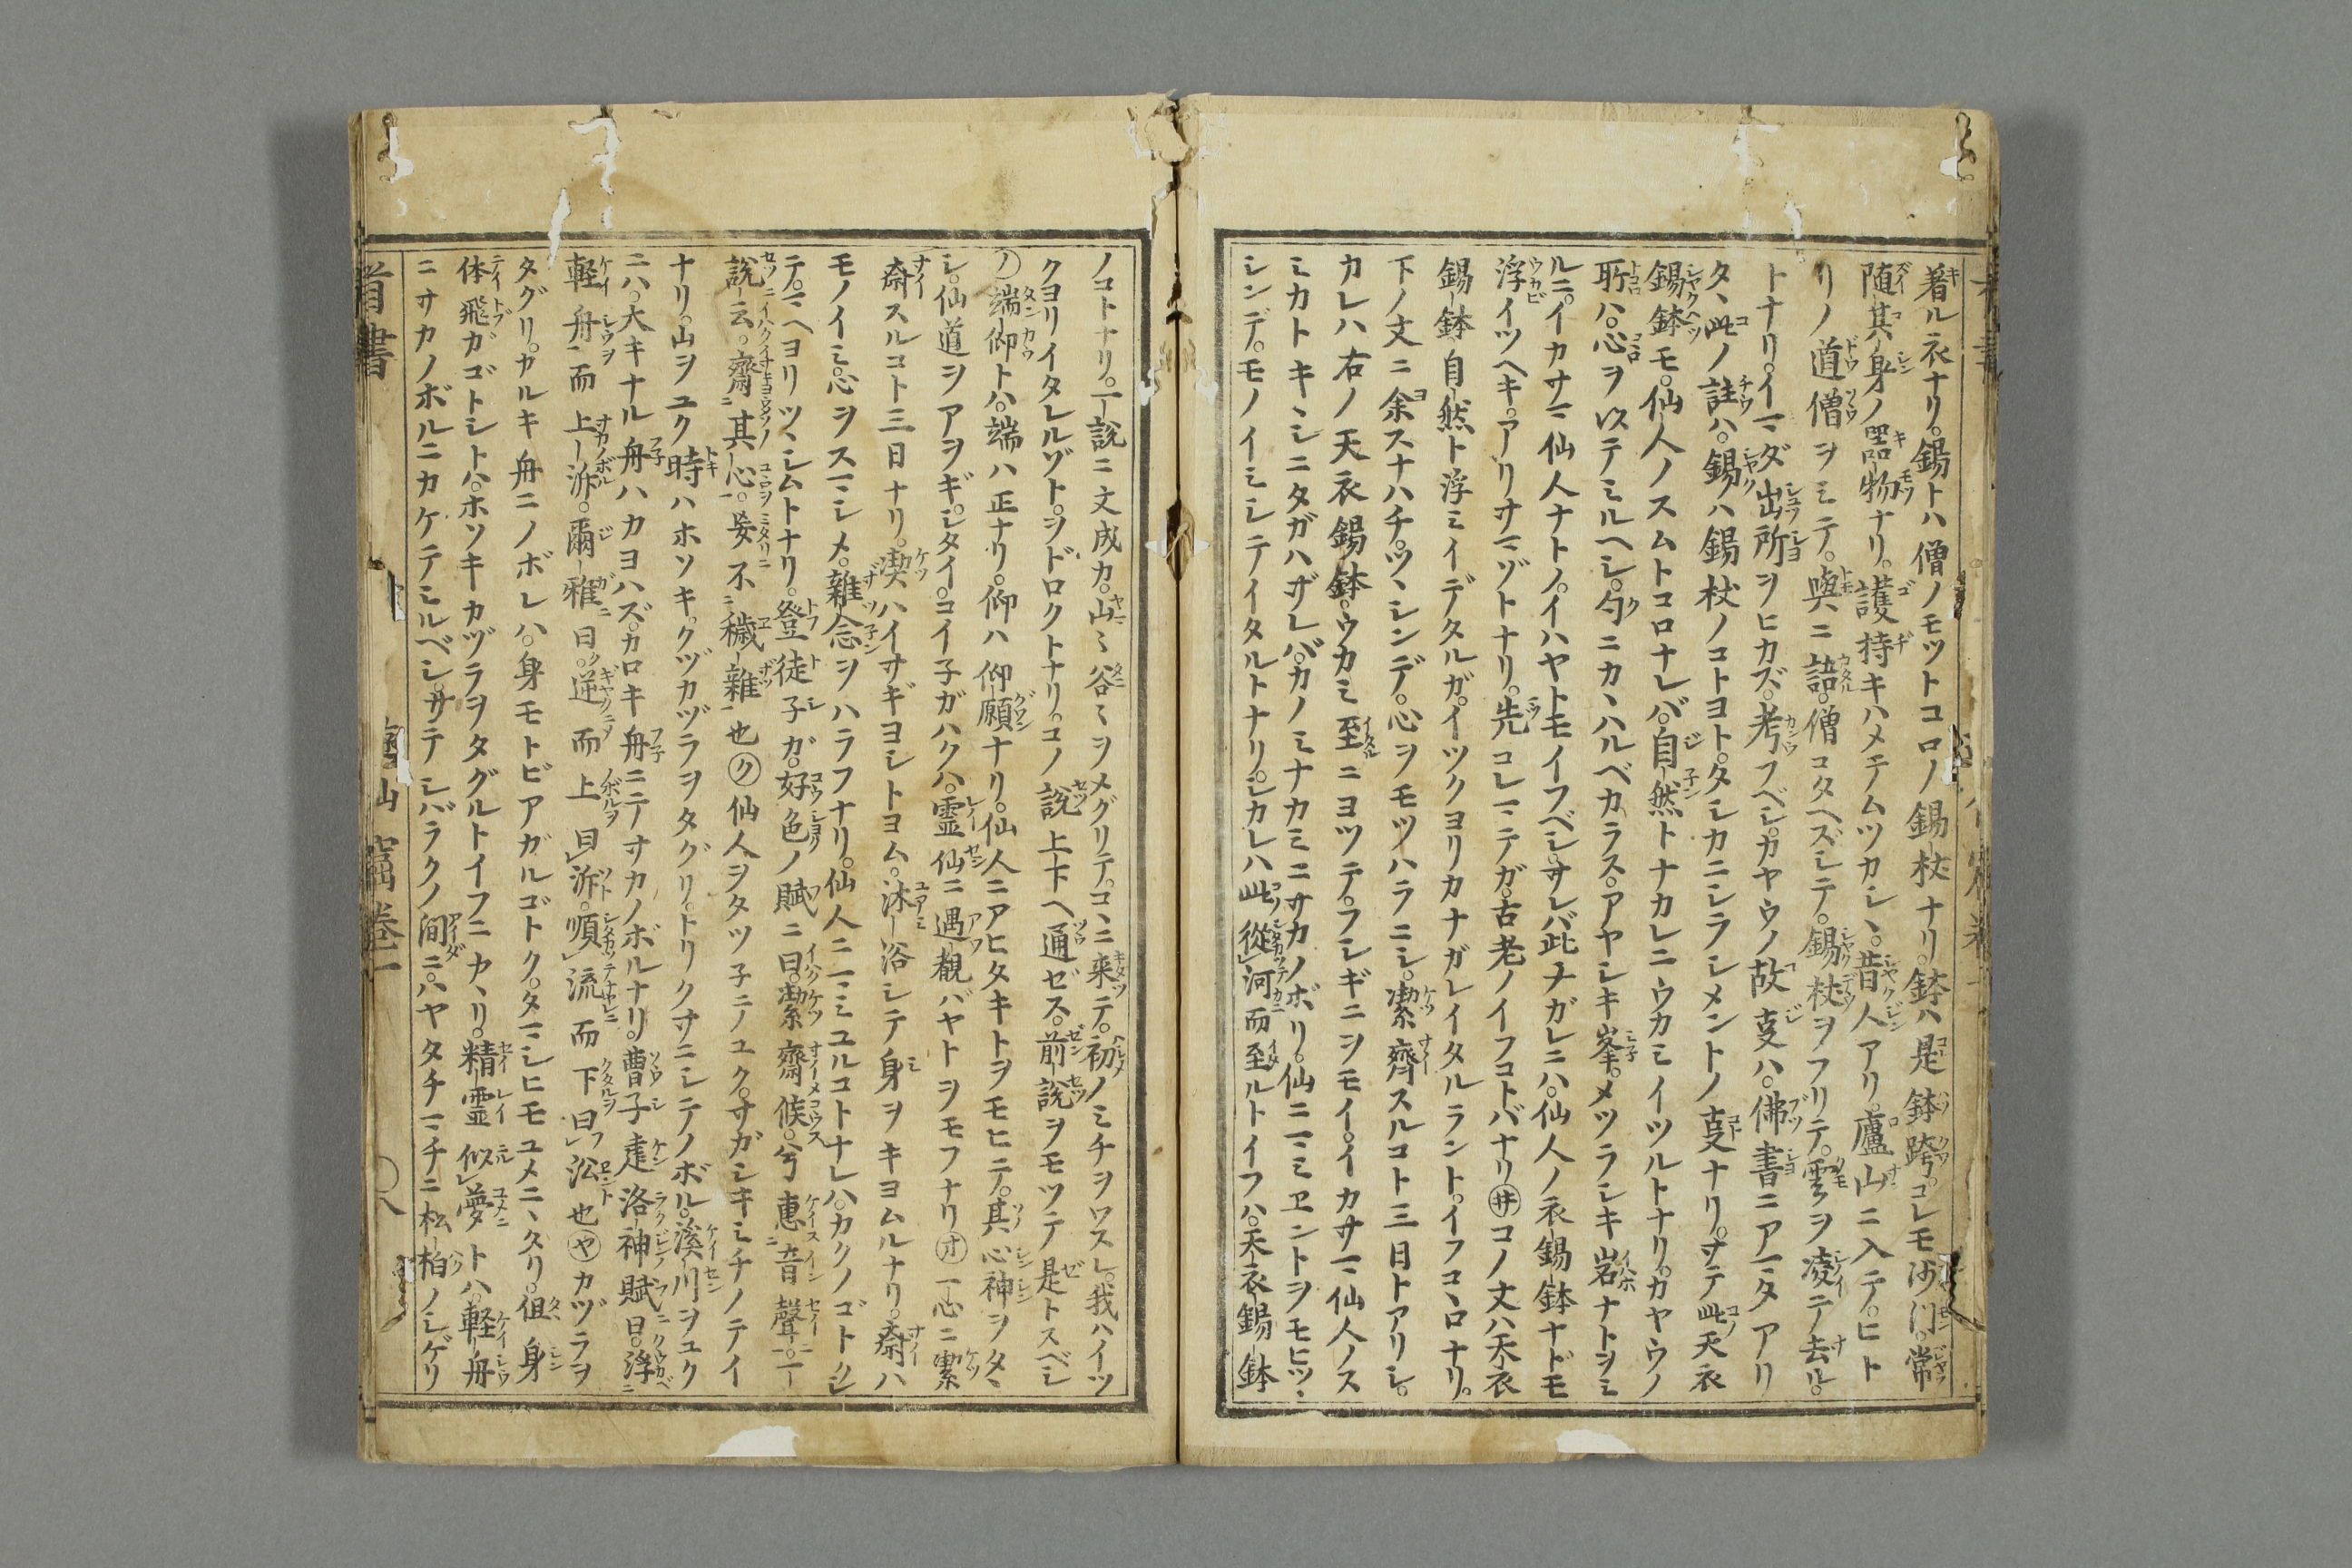 着ル衣ナリ。錫トハ僧ノモツトコロノ錫杖ナリ。鉢ハ是鉢跨。コレモ沙门。常
随其身ノ器物ナリ。護持キハメテムツカシヽ。昔人アリ。廬山ニ入テ。ヒト
リノ道僧ヲミテ。與ニ語。僧コタヘズシテ。錫杖ヲフリテ。雲ヲ凌テ去ル。
トナリ。イマダ出所ヲヒカズ。考フベシ。カヤウノ故叓ハ。佛書ニアマタアリ
タヽ此ノ註ハ。錫ハ錫杖ノコトヨト。タシカニシラシメントノ叓ナリ。サテ此天衣
錫鉢モ。仙人ノスムトコロナレバ。自然トナカレニウカミイツルトナリ。カヤウノ
所ハ。心ヲ以テミルヘシ。勺ニカヽハルベカラス。アヤシキ峯。メツラシキ岩ナトヲミ
ルニ。イカサマ仙人ナトノ。イハヤトモイフベシ。サレバ此ナガレニハ。仙人ノ衣錫鉢ナドモ
浮イツヘキ。アリサマゾトナリ。先コレマテガ。古老ノイフコトバナリ㋚コノ文ハ天衣
錫鉢自然ト浮ミイデタルガ。イツクヨリカナガレイタルラント。イフコヽロナリ。
下ノ文ニ余スナハチ。ツヽシンデ。心ヲモツハラニシ。潔齊スルコト三日トアリシ。
カレハ右ノ天衣錫鉢。ウカミ至ニヨツテ。フシギニヲモイ。イカサマ仙人ノス
ミカトキヽシニタガハザレバ。カノミナカミニサカノボリ。仙ニマミヱントヲモヒツヽ
シンデ。モノイミシテイタルトナリ。シカレハ此從河而至ルトイフハ。天衣錫鉢
ノコトナリ。一説ニ文成カ。山ミ谷ミヲメグリテ。コヽニ来テ。初ノミチヲワスレ。我ハイツ
クヨリイタレルゾト。ヲドロクトナリ。コノ説上下ヘ通ゼス。前説ヲモツテ是トスベシ
ノ端仰トハ。端ハ正ナリ。仰ハ仰願ナリ。仙人ニアヒタキトヲモヒニテ。其心神ヲタヽ
シ。仙道ヲアヲギ。シタイ。コイ子ガハクハ。霊仙ニ遇観バヤトヲモフナリ㋔一心ニ潔
斎スルコト三日ナリ。潔ハイサギヨシトヨム。沐浴シテ身ヲキヨムルナリ。斎ハ
モノイミ。心ヲスマシメ。雜念ヲハラフナリ。仙人ニマミユルコトナレハ。カクノゴトクシ
テ。マヘヨリツヽシムトナリ。登徒子ガ。好色ノ賦ニ曰。潔齋候。兮惠音聲。一
説云。齋其心。妄不穢雜也㋗仙人ヲタツ子テユク。サガシキミチノテイ
ナリ。山ヲユク時ハホソキ。クヅカヅラヲタグリ。トリクサニシテノボル。溪川ヲユク
ニハ。大キナル舟ハカヨハズ。カロキ舟ニテサカノボルナリ。曹子建洛神賦曰。浮
軽舟而上泝。爾雅曰。逆而上曰泝。順流而下曰㳂也㋳カヅラヲ
タグリ。カルキ舟ニノボレハ。身モトビアガルゴトク。タマシヒモユメニヽタリ。但身
体飛ガゴトシトハ。ホソキカヅラヲタグルトイフニカヽリ。精霊似夢トハ。軽舟
ニサカノボルニカケテミルベシ。サテシバラクノ间ニ。ハヤタチマチニ松柏ノシゲリ
首書 遊仙窟卷一 〇八